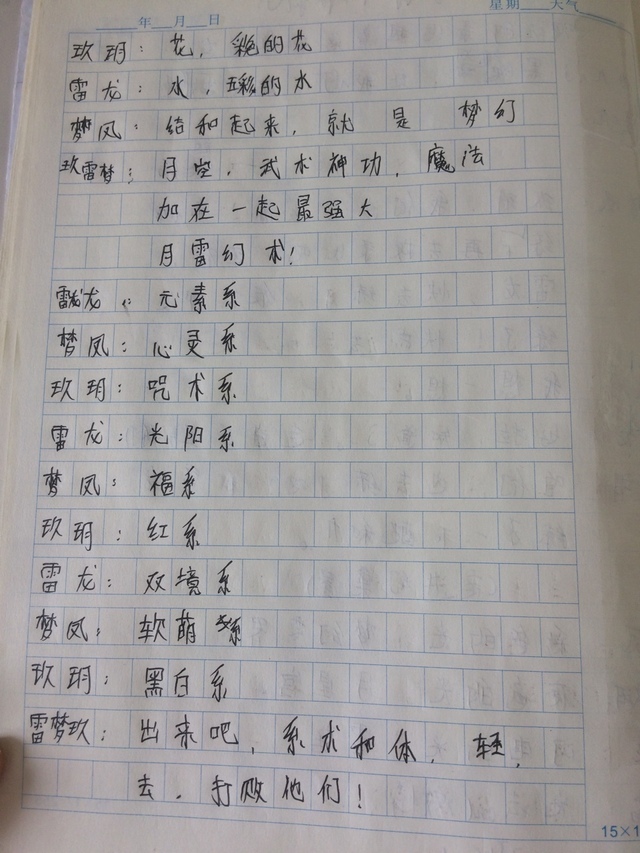 年 月 日 星期 天气
玖玥：花，彩色的花
雷龙：水，五彩的水
梦凤：结和起来，就是梦幻
玖雷梦：月空，武术神功，魔法
加在一起最强大
月雷幻术！
雷龙：元素系
梦凤：心灵系
玖玥：咒术系
雷龙：光阳系
梦凤：福系
玖玥：红系
雷龙：双境系
梦凤：软萌系
玖玥：黑白系
雷梦玖：出来吧，系术和体，轻，
去，打败他们！
15×1